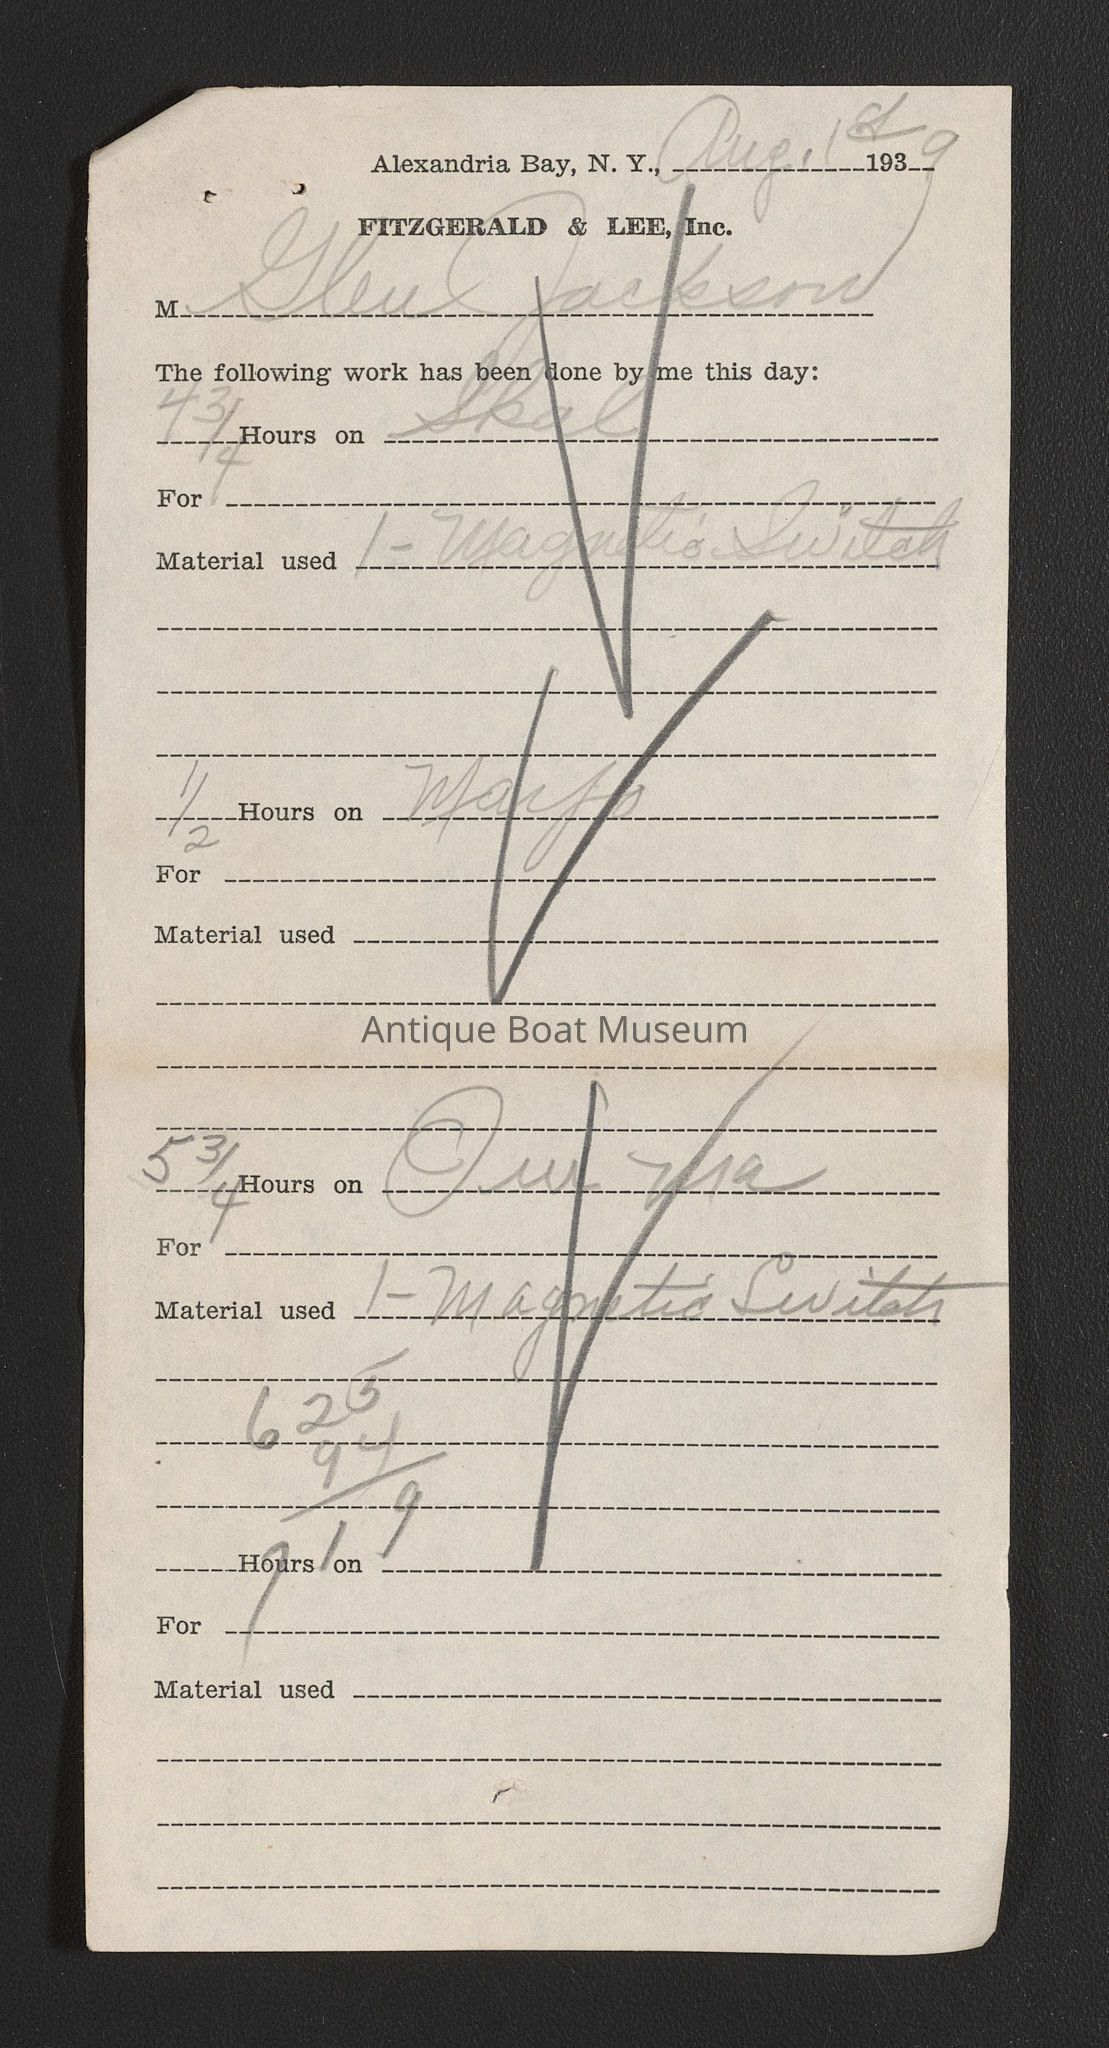 Alexandria Bay, N. Y., Aug. 1st 1939
FITZGERALD & LEE, Inc.
M Glen Jackson
The following work has been done by me this day:
4 3/4 Hours on Skal
For
Material used 1 - Magnetic Switch
1/2 Hours on
For
Material used
Antique Boat Museum
5 3/4 Hours on
For
Material used 1 - Magnetic Switch
6 25
94
7 1 9
Hours on
For
Material used